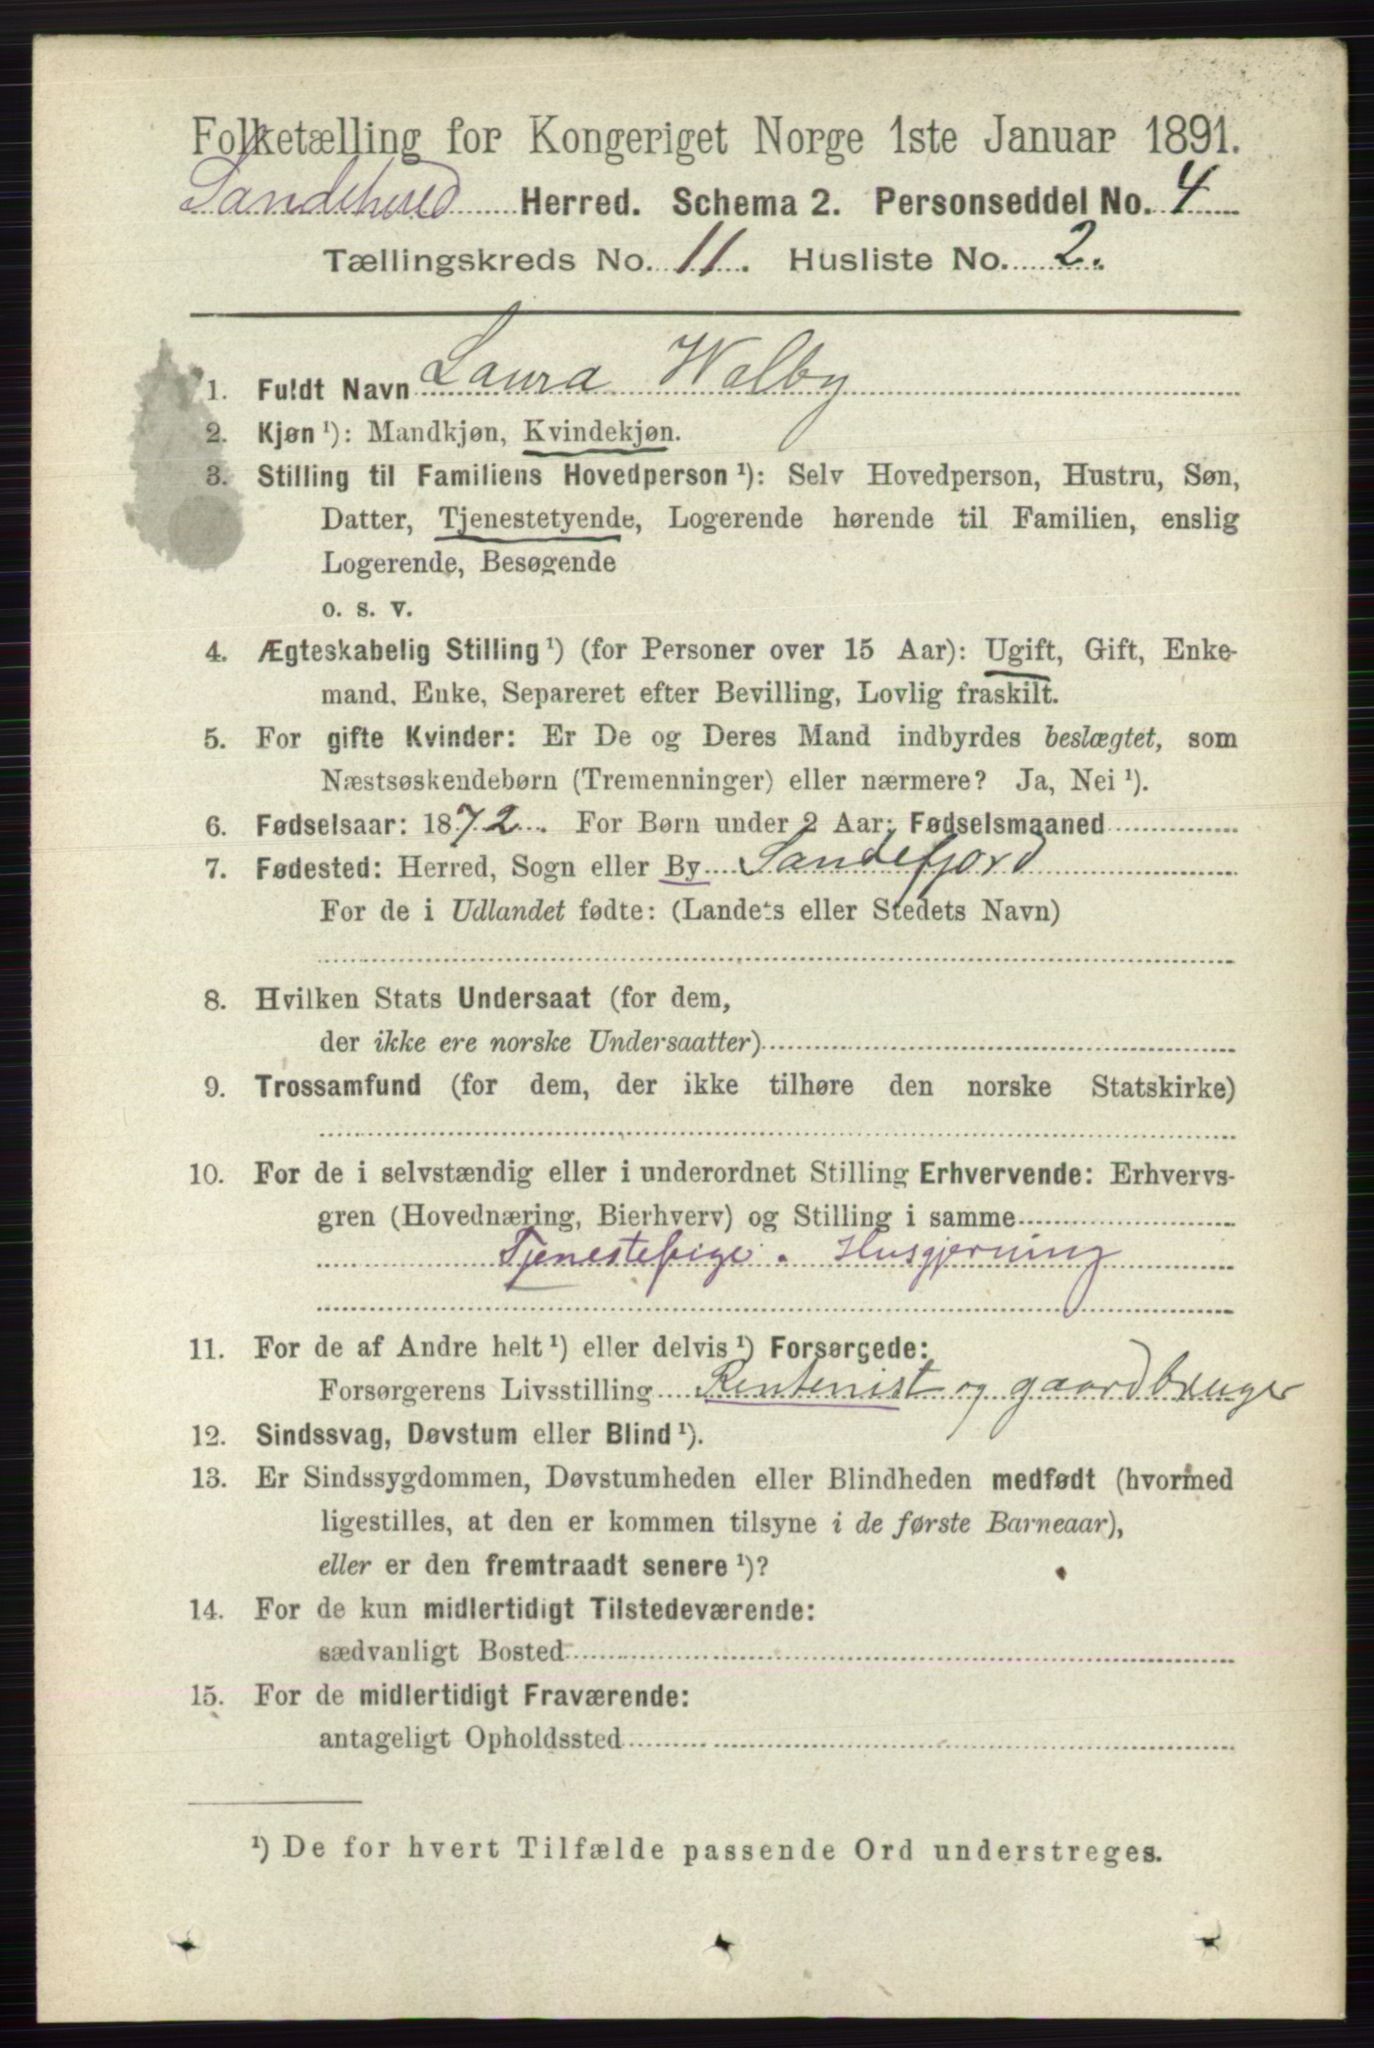 Folketælling for Kongeriget Norge 1ste Januar 1891.
Sandeherred Herred. Schema 2. Personseddel No. 4
Tællingskreds No. 11. Husliste No. 2.
1. Fuldt Navn Laura Walby
2. Kjøn ¹): Mandkjøn, Kvindekjøn.
3. Stilling til Familiens Hovedperson ¹): Selv Hovedperson, Hustru, Søn,
Datter, Tjenestetyende, Logerende hørende til Familien, enslig
Logerende, Besøgende
o. s. v.
4. Ægteskabelig Stilling ¹) (for Personer over 15 Aar): Ugift, Gift, Enke-
mand, Enke, Separeret efter Bevilling, Lovlig fraskilt.
5. For gifte Kvinder: Er De og Deres Mand indbyrdes beslægtet, som
Næstsøskendebørn (Tremenninger) eller nærmere? Ja, Nei ¹).
6. Fødselsaar: 1872. For Børn under 2 Aar: Fødselsmaaned
7. Fødested: Herred, Sogn eller By Sandefjord
For de i Udlandet fødte: (Landets eller Stedets Navn)
8. Hvilken Stats Undersaat (for dem,
der ikke ere norske Undersaatter)
9. Trossamfund (for dem, der ikke tilhøre den norske Statskirke)
10. For de i selvstændig eller i underordnet Stilling Erhvervende: Erhvervs-
gren (Hovednæring, Bierhverv) og Stilling i samme
Tjenestepige. Husgjerning
11. For de af Andre helt ¹) eller delvis ¹) Forsørgede:
Forsørgerens Livsstilling Rentenist og gaardbruger
12. Sindssvag, Døvstum eller Blind ¹).
13. Er Sindssygdommen, Døvstumheden eller Blindheden medfødt (hvormed
ligestilles, at den er kommen tilsyne i de første Barneaar),
eller er den fremtraadt senere ¹)?
14. For de kun midlertidigt Tilstedeværende:
sædvanligt Bosted
15. For de midlertidigt Fraværende:
antageligt Opholdssted
¹) De for hvert Tilfælde passende Ord understreges.